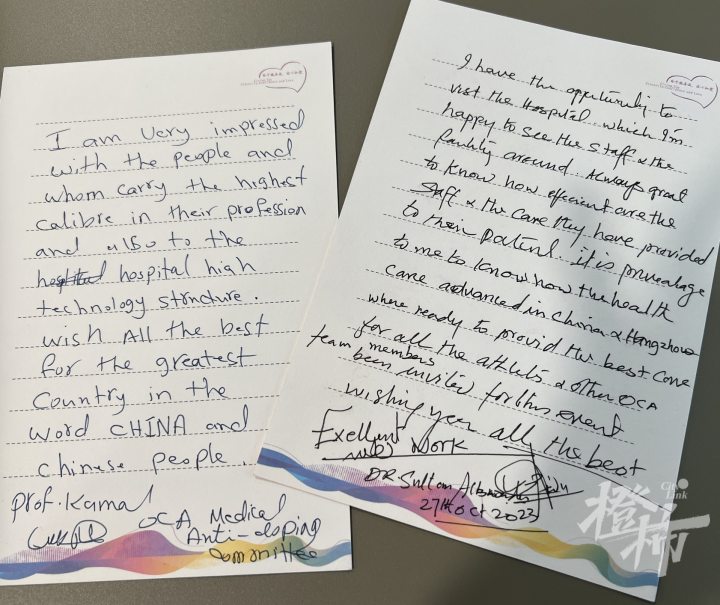 I am very impressed
with the people and
whom carry the highest
calibre in their profession
and also to the
hospital high
technology structure.
wish All the best
for the greatest
Country in the
word CHINA and
chinese people.
Prof. Kamal
OCA Medical
Anti-doping
committee
I have the opportunity to
visit the Hospital which I'm
happy to see the staff & the
around Always great
to know how efficient are the
staff & the care they have provided
to their patient it is
to me to know how the health
care advanced in China & Hangzhou
where ready to provid the best Care
for all the athlets & other OCA
team members
been invited for this event
wishing you all the best
Exellent
work
DR Sultan
27th Oct 2023
City Link
橙柿